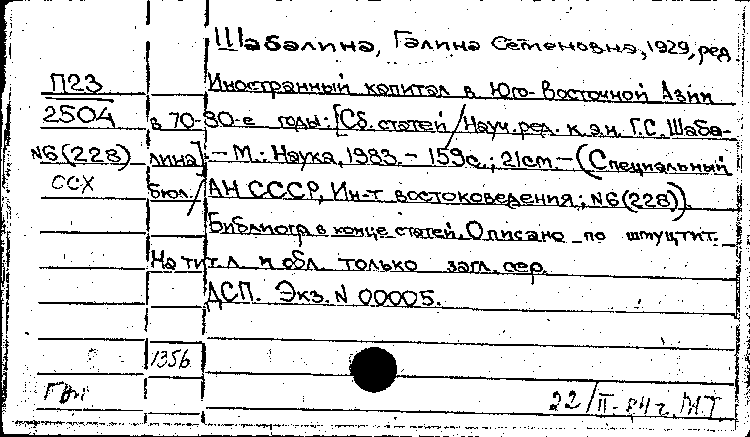 Шабалина, Галина Семеновна, 1929, ред.
П23 Иностранный капитал в Юго-Восточной Азии
2504 в 70-80-е годы: [Сб. статей / Науч. ред. к.э.н. Г.С. Шаба-
N6(228) лина] - М.: Наука, 1983. - 159с.; 21см. - (Специальный
ССХ бюл. / АН СССР, Ин-т востоковедения; N6(228)).
Библиогр. в конце статей. Описано по шмуцтит.
На тит. л. и обл. только загл. сер.
ДСП. Экз. N 00005.
1356
22/II-84г. М.Т